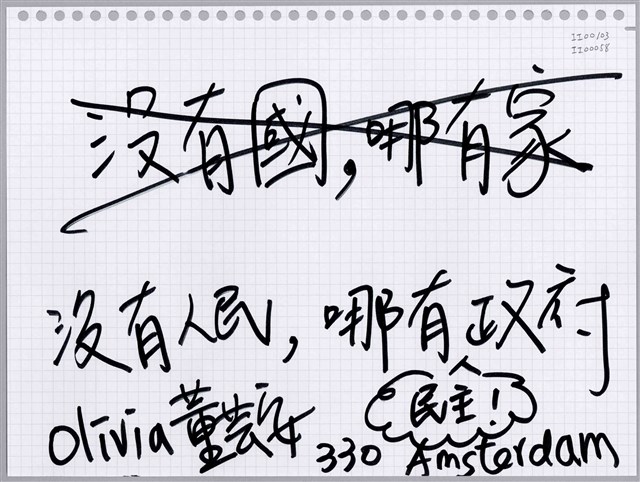 II00103
II00058
沒有國，哪有家
沒有人民，哪有政府
民主！
Olivia 董芸安
330 Amsterdam